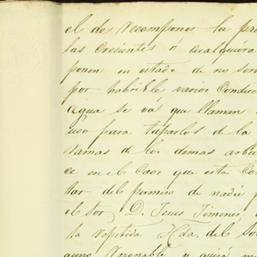 el de recomponer la pre
las Crecientes ó cualquiera
ponen en estado de no ser
por haberle varios Conduc
agua se vá que llaman
uso para taparlos de la
ramas de los demas arbol
ce en el Caso que esta Co
tar del permiso de nadie p
el Sor D. Jesus Jimenes
la repetida Hda. del So